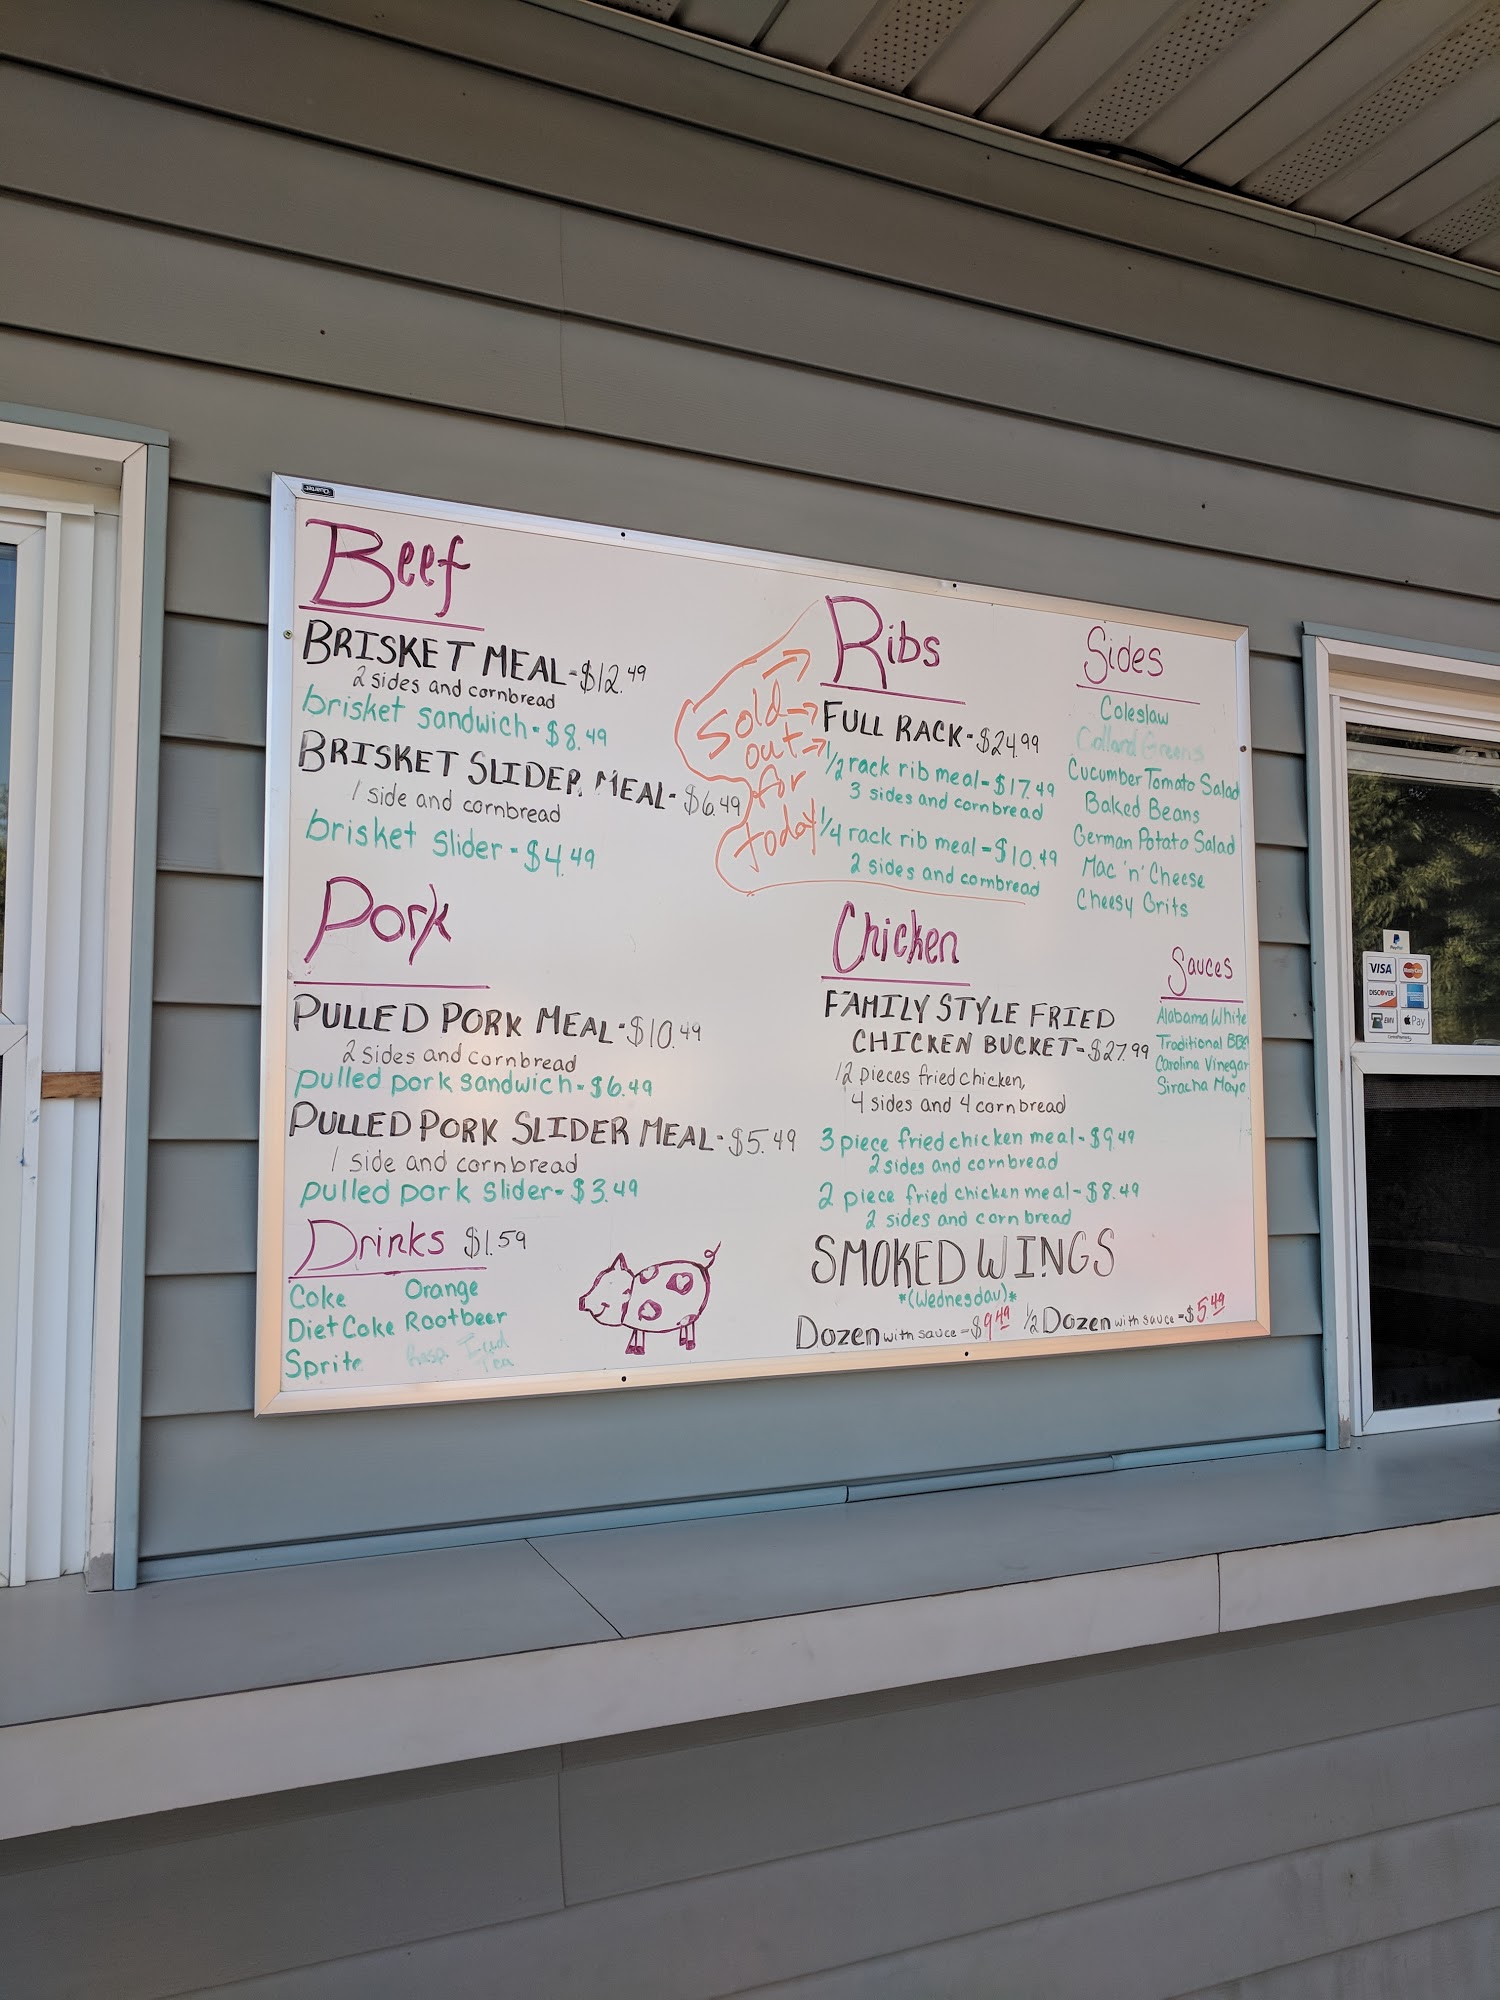 Quartet
Beef
BRISKET MEAL-$12.49
2 sides and cornbread
brisket sandwich-$8.49
BRISKET SLIDER MEAL-$6.49
1 side and cornbread
brisket slider-$4.49
Pork
PULLED PORK MEAL-$10.49
2 sides and cornbread
pulled pork sandwich-$6.49
PULLED PORK SLIDER MEAL-$5.49
1 side and cornbread
pulled pork slider-$3.49
Drinks $1.59
Coke Orange
Diet Coke Rootbeer
Sprite Rasp. Iced
Tea
Sold
out
for
today
Ribs
FULL RACK-$24.99
1/2 rack rib meal-$17.49
3 sides and cornbread
1/4 rack rib meal-$10.49
2 sides and cornbread
Chicken
FAMILY STYLE FRIED
CHICKEN BUCKET-$27.99
12 pieces fried chicken,
4 sides and 4 cornbread
3 piece fried chicken meal-$9.49
2 sides and cornbread
2 piece fried chicken meal-$8.49
2 sides and cornbread
SMOKED WINGS
*(Wednesday)*
Dozen with sauce-$9.49 1/2 Dozen with sauce-$5.49
Sides
Coleslaw
Collard Greens
Cucumber Tomato Salad
Baked Beans
German Potato Salad
Mac 'n' Cheese
Cheesy Grits
Sauces
Alabama White
Traditional BBQ
Carolina Vinegar
Siracha Mayo
PayPal
VISA MasterCard
DISCOVER
EMV Pay